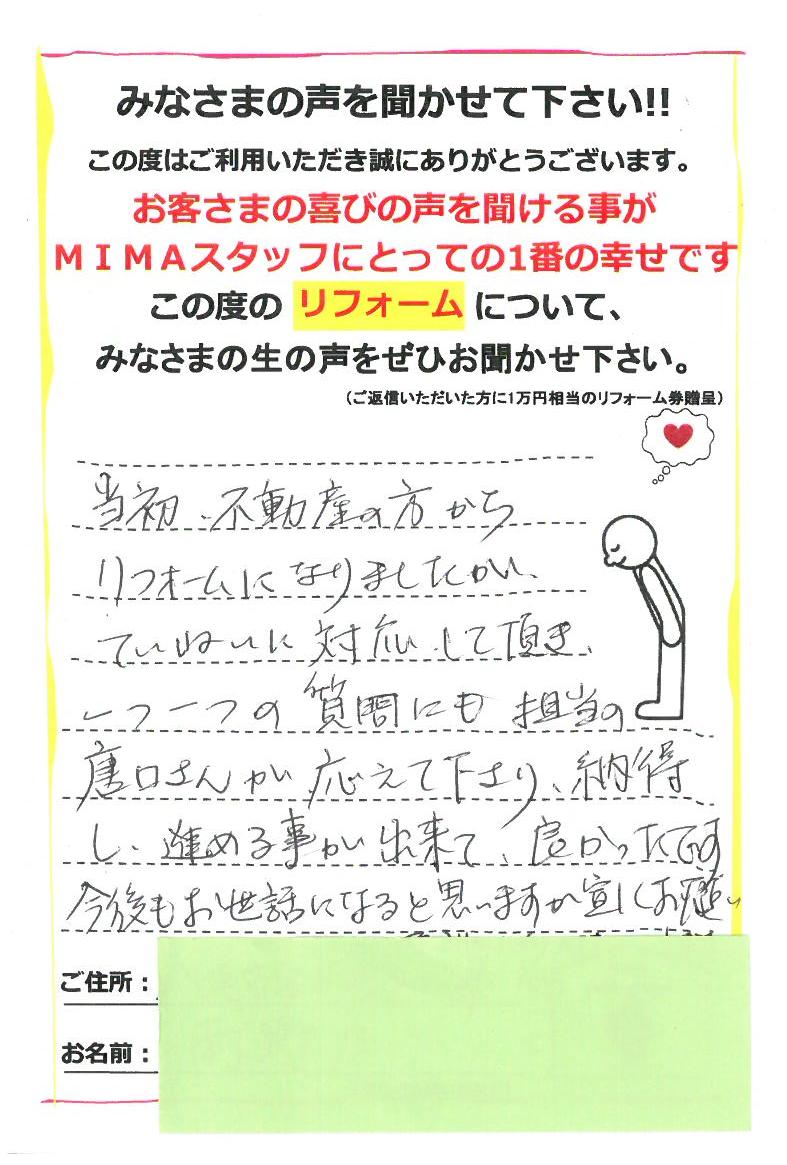 みなさまの声を聞かせて下さい!!
この度はご利用いただき誠にありがとうございます。
お客さまの喜びの声を聞ける事が
ＭＩＭＡスタッフにとっての1番の幸せです
この度の リフォーム について、
みなさまの生の声をぜひお聞かせ下さい。
（ご返信いただいた方に1万円相当のリフォーム券贈呈）
当初、不動産の方から
リフォームになりましたが、
ていねいに対応して頂き、
一つ一つの質問にも担当の
唐口さんが応えて下さり、納得
し、進める事が出来て、良かったです
今後もお世話になると思いますが宜しくお願い
ご住所：
お名前：